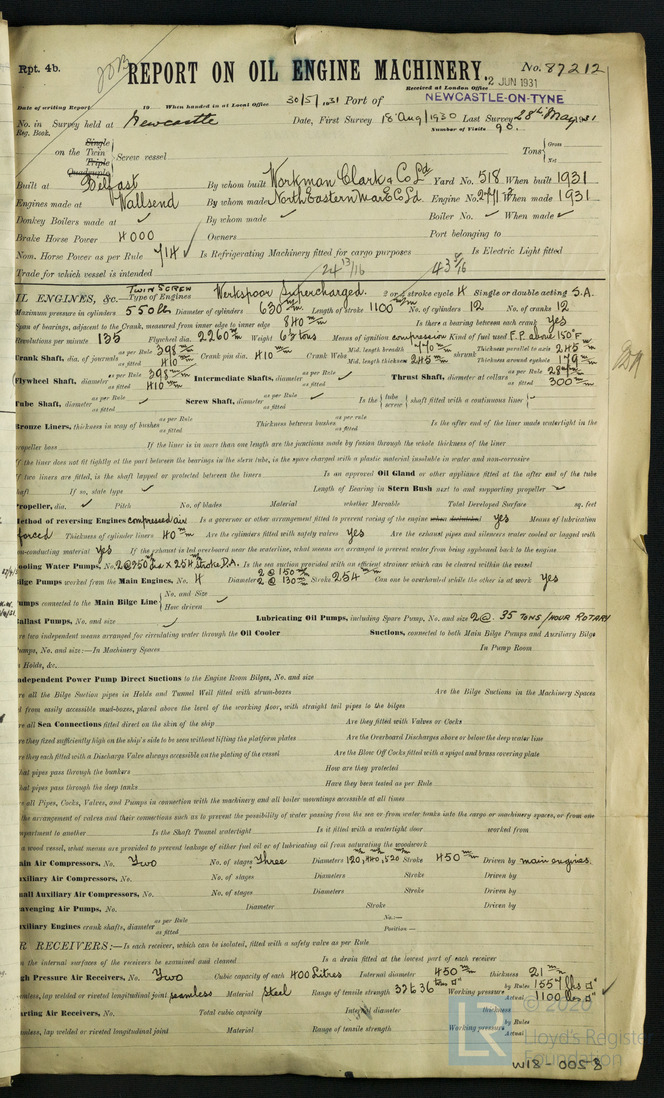 Rpt. 4b.
REPORT ON OIL ENGINE MACHINERY.
No. 87212
Received at London Office
2 JUN 1931
Date of writing Report 19 When handed in at Local Office 30/5/1931 Port of NEWCASTLE-ON-TYNE
No. in Survey held at Newcastle Date, First Survey 18 Aug/1930 Last Survey 28th May 1931
Reg. Book. Number of Visits 90
Single
on the Twin Screw vessel
Triple
Quadruple
Tons Gross
Net
Built at Belfast By whom built Workman Clark & Co Ld Yard No. 518 When built 1931
Engines made at Wallsend By whom made North Eastern Mar E Co Ld Engine No. When made 1931
Donkey Boilers made at ✓ By whom made ✓ Boiler No. ✓ When made ✓
Brake Horse Power 4000 Owners Port belonging to
Nom. Horse Power as per Rule 714 ✓ Is Refrigerating Machinery fitted for cargo purposes Is Electric Light fitted
24 13/16
Trade for which vessel is intended
TWIN SCREW
IL ENGINES, &c.—Type of Engines Werkspoor Supercharged. 2 or 4 stroke cycle 4 Single or double acting S.A.
Maximum pressure in cylinders 550 lb Diameter of cylinders 630 m/m Length of stroke 1100 m/m No. of cylinders 12 No. of cranks 12
Span of bearings, adjacent to the Crank, measured from inner edge to inner edge 840 m/m Is there a bearing between each crank yes
Revolutions per minute 135 Flywheel dia. 2260 m/m Weight Means of ignition compression Kind of fuel used F.P. above 150°F
Crank Shaft, dia. of journals as per Rule 398 m/m as fitted 410 m/m Crank pin dia. 410 m/m Crank Webs Mid. length breadth 770 m/m Mid. length thickness 245 m/m shrunk Thickness parallel to axis 245 m/m Thickness around eyehole 179 m/m
Flywheel Shaft, diameter as per Rule 398 m/m as fitted 410 m/m Intermediate Shafts, diameter as per Rule as fitted Thrust Shaft, diameter at collars as per Rule as fitted 300 m/m
Tube Shaft, diameter as per Rule as fitted Screw Shaft, diameter as per Rule as fitted Is the tube screw shaft fitted with a continuous liner
Bronze Liners, thickness in way of bushes as per Rule as fitted Thickness between bushes as per rule as fitted Is the after end of the liner made watertight in the
propeller boss If the liner is in more than one length are the junctions made by fusion through the whole thickness of the liner
If the liner does not fit tightly at the part between the bearings in the stern tube, is the space charged with a plastic material insoluble in water and non-corrosive
If two liners are fitted, is the shaft lapped or protected between the liners Is an approved Oil Gland or other appliance fitted at the after end of the tube
shaft If so, state type ✓ Length of Bearing in Stern Bush next to and supporting propeller
Propeller, dia. ✓ Pitch No. of blades Material whether Moveable Total Developed Surface sq. feet
Method of reversing Engines compressed air Is a governor or other arrangement fitted to prevent racing of the engine when declutched yes Means of lubrication
forced Thickness of cylinder liners 40 m/m Are the cylinders fitted with safety valves yes Are the exhaust pipes and silencers water cooled or lagged with
non-conducting material yes If the exhaust is led overboard near the waterline, what means are arranged to prevent water from being syphoned back to the engine
Cooling Water Pumps, No. 2 @ 350 dia x 254 stroke D.A. Is the sea suction provided with an efficient strainer which can be cleared within the vessel
Bilge Pumps worked from the Main Engines, No. 4 Diameter 2 @ 150 m/m 2 @ 130 m/m Stroke 254 m/m Can one be overhauled while the other is at work yes
Pumps connected to the Main Bilge Line No. and Size How driven ✓
Ballast Pumps, No. and size Lubricating Oil Pumps, including Spare Pump, No. and size 2 @ 35 TONS/HOUR ROTARY
Are two independent means arranged for circulating water through the Oil Cooler Suctions, connected to both Main Bilge Pumps and Auxiliary Bilge
Pumps, No. and size:—In Machinery Spaces In Pump Room
In Holds, &c.
Independent Power Pump Direct Suctions to the Engine Room Bilges, No. and size
Are all the Bilge Suction pipes in Holds and Tunnel Well fitted with strum-boxes Are the Bilge Suctions in the Machinery Spaces
led from easily accessible mud-boxes, placed above the level of the working floor, with straight tail pipes to the bilges
Are all Sea Connections fitted direct on the skin of the ship Are they fitted with Valves or Cocks
Are they fixed sufficiently high on the ship's side to be seen without lifting the platform plates Are the Overboard Discharges above or below the deep water line
Are they each fitted with a Discharge Valve always accessible on the plating of the vessel Are the Blow Off Cocks fitted with a spigot and brass covering plate
What pipes pass through the bunkers How are they protected
What pipes pass through the deep tanks Have they been tested as per Rule
Are all Pipes, Cocks, Valves, and Pumps in connection with the machinery and all boiler mountings accessible at all times
the arrangement of valves and their connections such as to prevent the possibility of water passing from the sea or from water tanks into the cargo or machinery spaces, or from one
compartment to another Is the Shaft Tunnel watertight Is it fitted with a watertight door worked from
a wood vessel, what means are provided to prevent leakage of either fuel oil or of lubricating oil from saturating the woodwork
Main Air Compressors, No. Two No. of stages Three Diameters 120, 440, 520 Stroke 450 m/m Driven by main engines.
Auxiliary Air Compressors, No. No. of stages Diameters Stroke Driven by
Small Auxiliary Air Compressors, No. No. of stages Diameters Stroke Driven by
Scavenging Air Pumps, No. Diameter Stroke Driven by
Auxiliary Engines crank shafts, diameter as per Rule as fitted No.:— Position —
R RECEIVERS:—Is each receiver, which can be isolated, fitted with a safety valve as per Rule
the internal surfaces of the receivers be examined and cleaned Is a drain fitted at the lowest part of each receiver
High Pressure Air Receivers, No. Two Cubic capacity of each 400 Litres Internal diameter 450 m/m thickness 21 m/m
Seamless, lap welded or riveted longitudinal joint seamless Material Steel Range of tensile strength 32 to 36 tons □" Working pressure by Rules 1557 lbs □" Actual 1100 lbs □"
Starting Air Receivers, No. Total cubic capacity Internal diameter thickness
Seamless, lap welded or riveted longitudinal joint Material Range of tensile strength Working pressure by Rules Actual
© 2020
Lloyd's Register
Foundation
LR
W18 - 0025 8